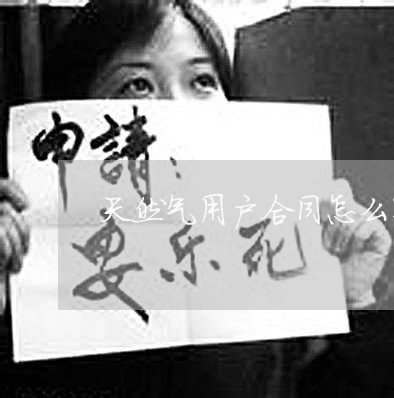 申請：
天然气用户合同怎么
安乐死